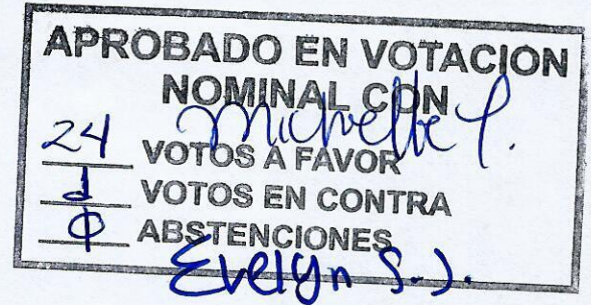 APROBADO EN VOTACION
NOMINAL CON
Michelle P.
24 VOTOS A FAVOR
1 VOTOS EN CONTRA
Φ ABSTENCIONES
Evelyn S.J.